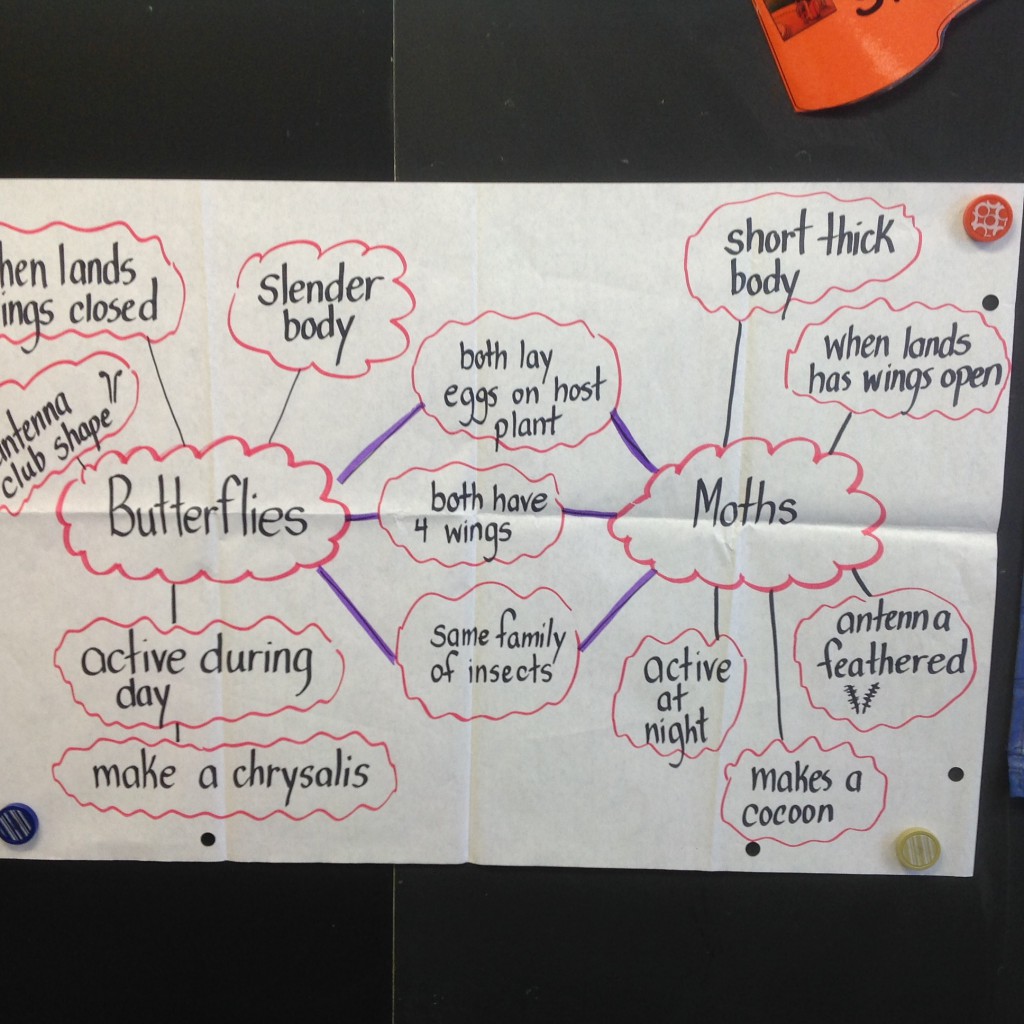 hen lands
ings closed
slender
body
antenna
club shape
Butterflies
active during
day
make a chrysalis
both lay
eggs on host
plant
both have
4 wings
same family
of insects
short thick
body
when lands
has wings open
Moths
active
at
night
antenna
feathered
makes a
cocoon